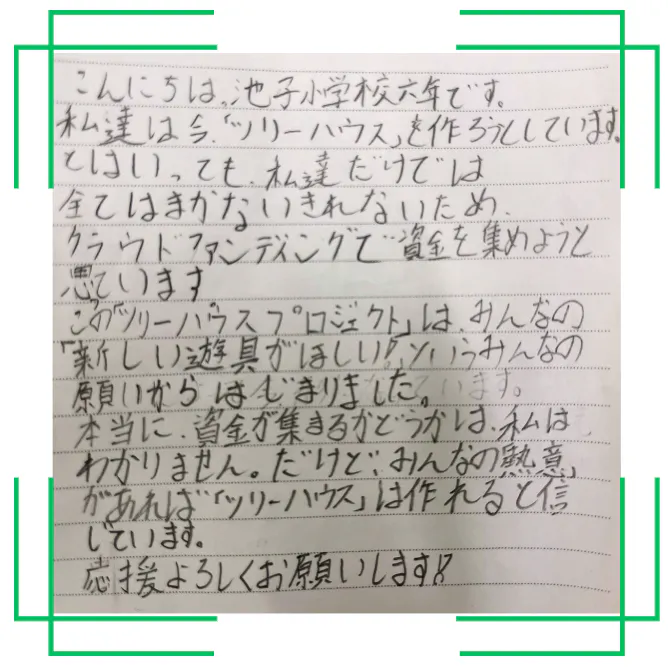 こんにちは。池子小学校六年です。
私達は今、「ツリーハウス」を作ろうとしています。
とはいっても、私達だけでは
全てはまかないきれないため、
クラウドファンディングで資金を集めようと
思っています
この「ツリーハウスプロジェクト」は、みんなの
「新しい遊具がほしい!」というみんなの
願いからはじまりました。
本当に、資金が集まるかどうかは、私は
わかりません。だけど、みんなの「熱意」
があれば「ツリーハウス」は作れると信
じています。
応援よろしくお願いします!